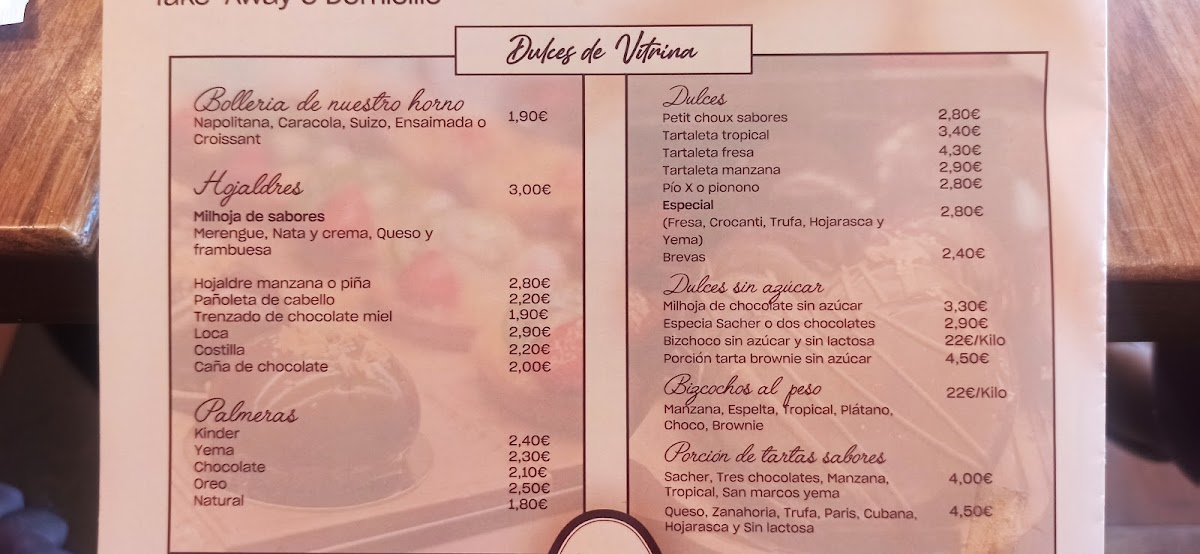 Take-Away o Domicilio
Dulces de Vitrina
Bolleria de nuestro horno
Napolitana, Caracola, Suizo, Ensaimada o 1,90€
Croissant
Hojaldres 3,00€
Milhoja de sabores
Merengue, Nata y crema, Queso y
frambuesa
Hojaldre manzana o piña 2,80€
Pañoleta de cabello 2,20€
Trenzado de chocolate miel 1,90€
Loca 2,90€
Costilla 2,20€
Caña de chocolate 2,00€
Palmeras
Kinder 2,40€
Yema 2,30€
Chocolate 2,10€
Oreo 2,50€
Natural 1,80€
Dulces
Petit choux sabores 2,80€
Tartaleta tropical 3,40€
Tartaleta fresa 4,30€
Tartaleta manzana 2,90€
Pío X o pionono 2,80€
Especial 2,80€
(Fresa, Crocanti, Trufa, Hojarasca y
Yema)
Brevas 2,40€
Dulces sin azúcar
Milhoja de chocolate sin azúcar 3,30€
Especia Sacher o dos chocolates 2,90€
Bizchoco sin azúcar y sin lactosa 22€/Kilo
Porción tarta brownie sin azúcar 4,50€
Bizcochos al peso 22€/Kilo
Manzana, Espelta, Tropical, Plátano,
Choco, Brownie
Porción de tartas sabores
Sacher, Tres chocolates, Manzana, 4,00€
Tropical, San marcos yema
Queso, Zanahoria, Trufa, Paris, Cubana, 4,50€
Hojarasca y Sin lactosa